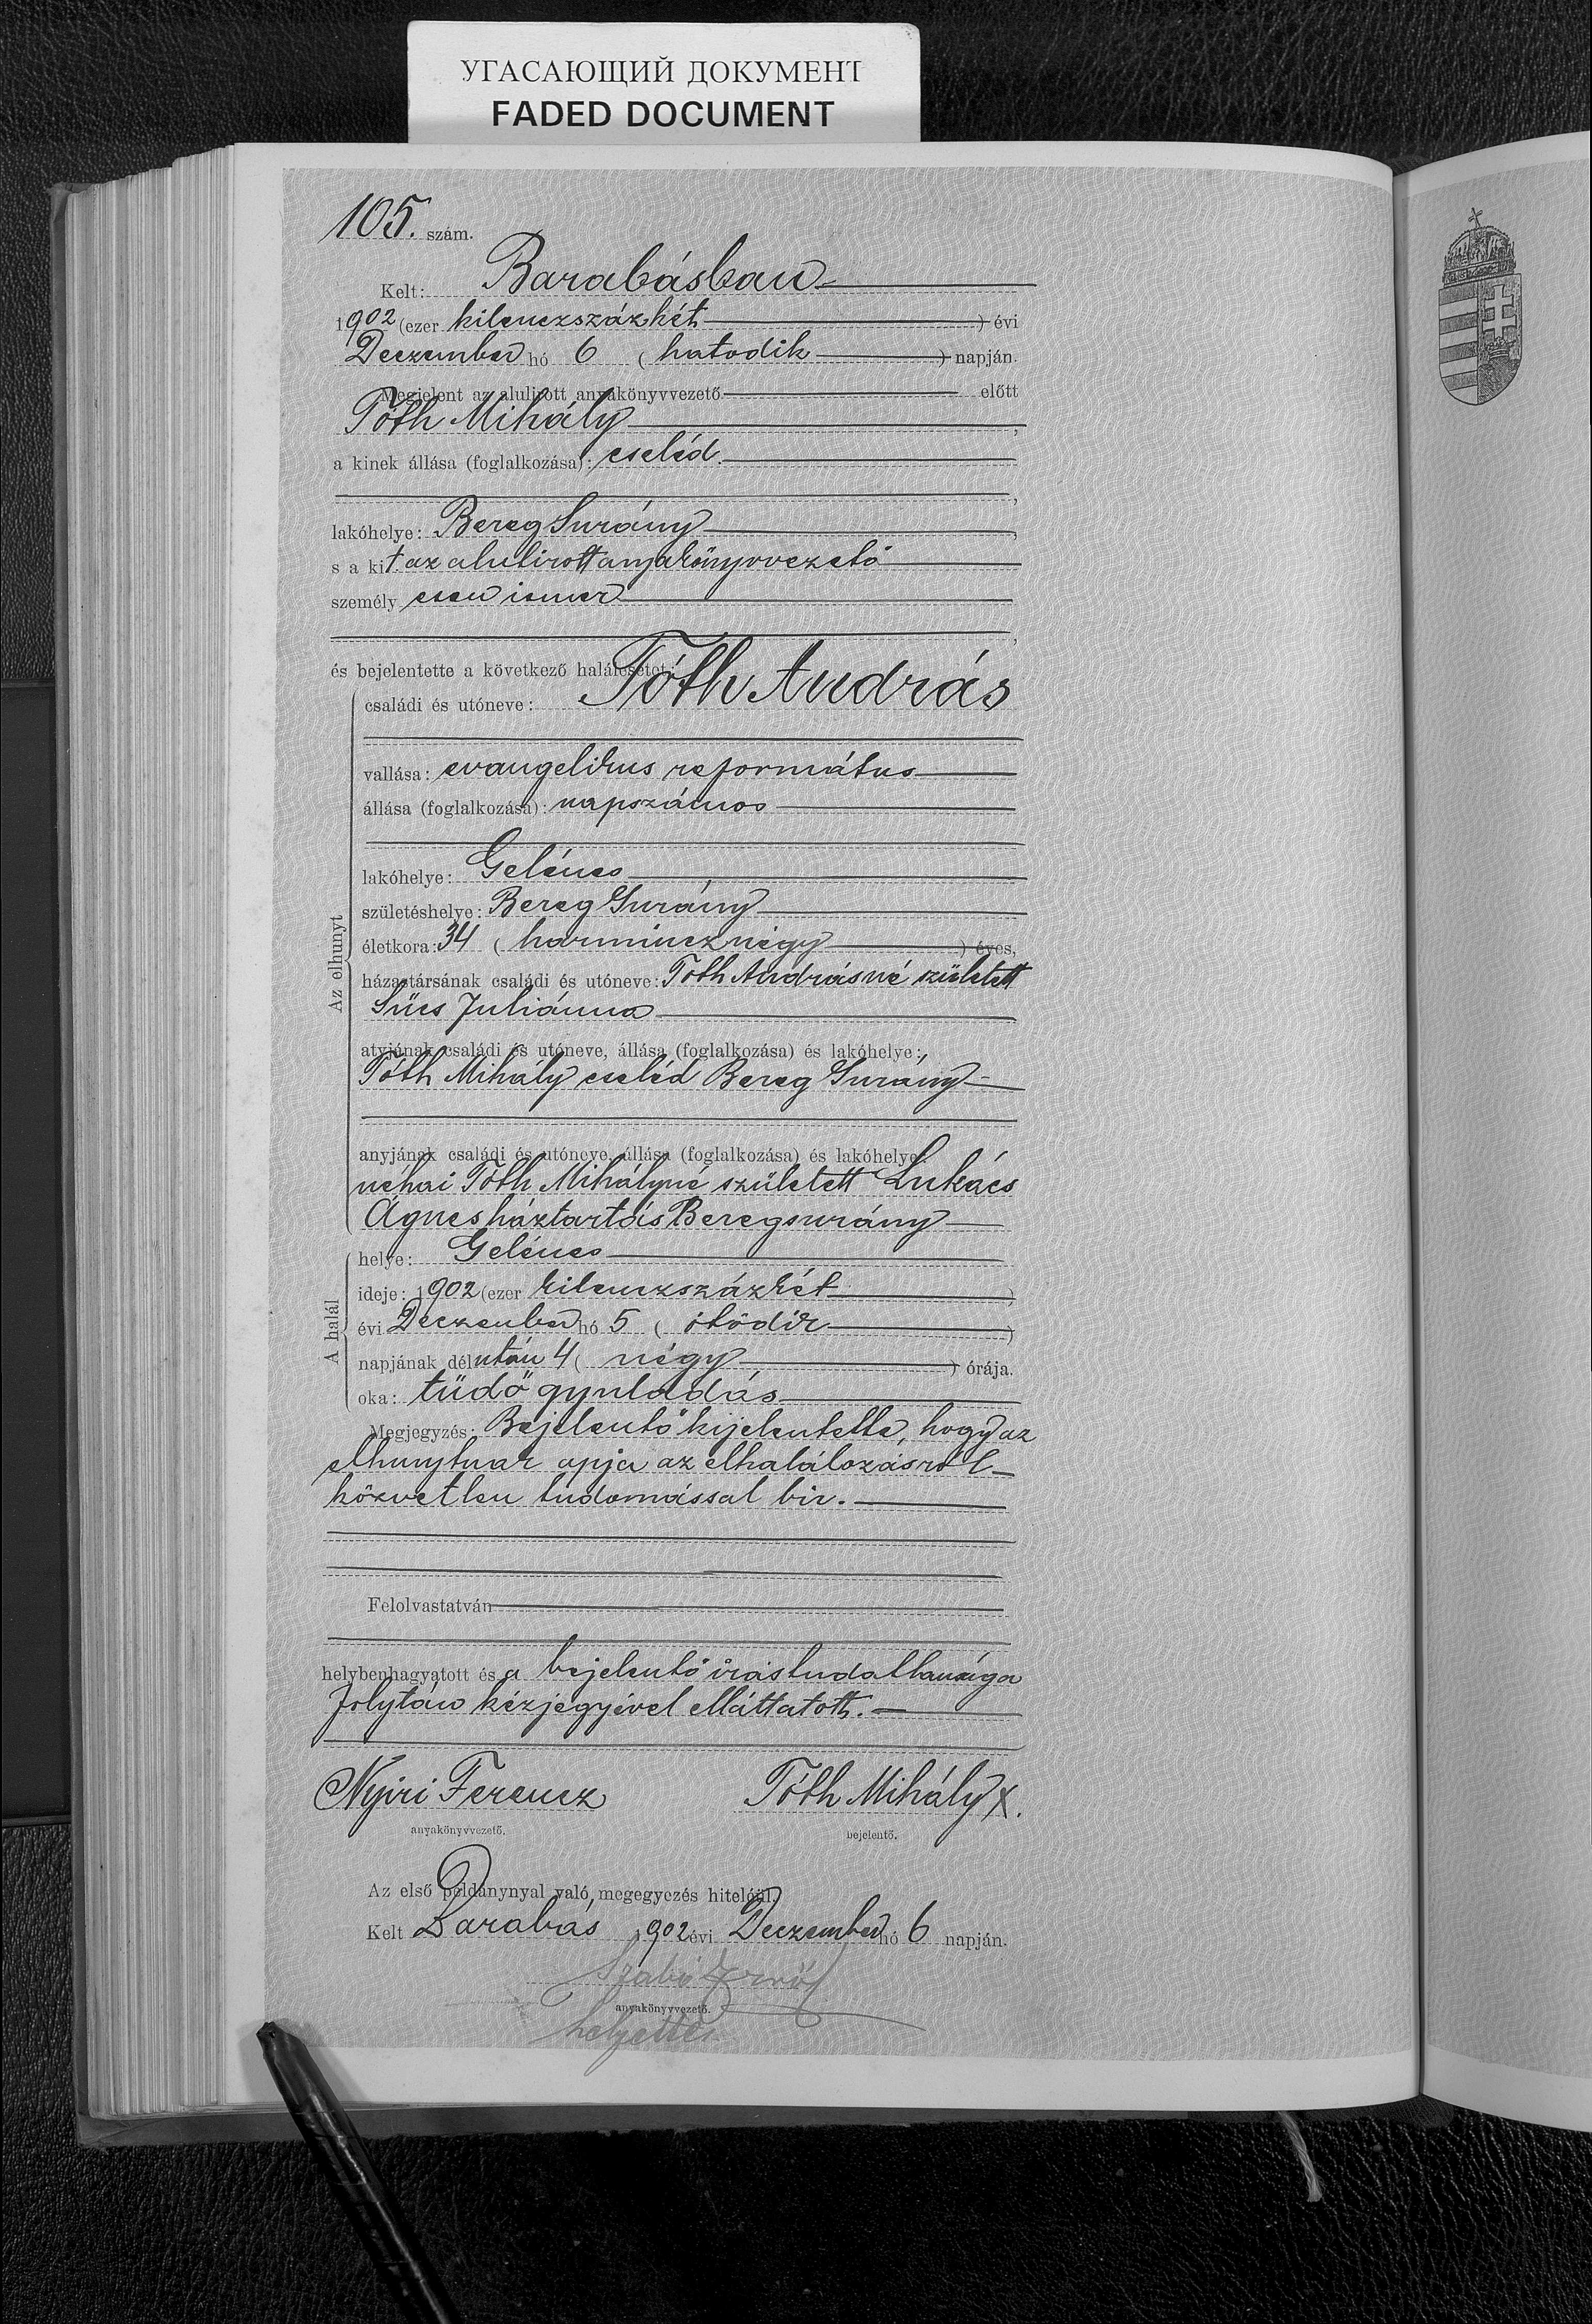 УГАСАЮЩИЙ ДОКУМЕНТ
FADED DOCUMENT
105. szám.
Kelt: Barabásban
1902 (ezer kilenczszázkét ) évi
Deczember hó 6 ( hatodik ) napján.
Megjelent az alulirott anyakönyvvezető előtt
Tóth Mihály ,
a kinek állása (foglalkozása): cseléd.
,
lakóhelye: Bereg Surány ,
s a kit az alulirott anyakönyvvezető
személyesen ismer
,
és bejelentette a következő halálesetet:
családi és utóneve: Tóth András
Az elhunyt
vallása: evangelikus református
állása (foglalkozása): napszámos
lakóhelye: Gelénes
születéshelye: Bereg Surány
életkora: 34 ( harmincznégy ) éves,
házastársának családi és utóneve: Tóth Andrásné született
Sücs Juliánna
atyjának családi és utóneve, állása (foglalkozása) és lakóhelye:
Tóth Mihály cseléd Bereg Surány
anyjának családi és utóneve, állása (foglalkozása) és lakóhelye:
néhai Tóth Mihályné született Lukács
Ágnes háztartás Beregsurány
A halál
helye: Gelénes
ideje: 1902 (ezer kilenczszázkét )
évi Deczember hó 5 ( ötödik )
napjának délután 4 ( négy ) órája.
oka: tüdő gyuladás
Megjegyzés: Bejelentő kijelentette, hogy az
elhunytnak apja az elhalálozásról
közvetlen tudomással bir.
Felolvastatván
helybenhagyatott és a bejelentő irástudatlansága
folytán kézjegyével elláttatott.
Nyiri Ferencz Tóth Mihály X.
anyakönyvvezető. bejelentő.
Az első példánynyal való megegyezés hiteléül.
Kelt Barabás 1902 évi Deczember hó 6 napján.
Szabó Ernő
anyakönyvvezető.
helyettes